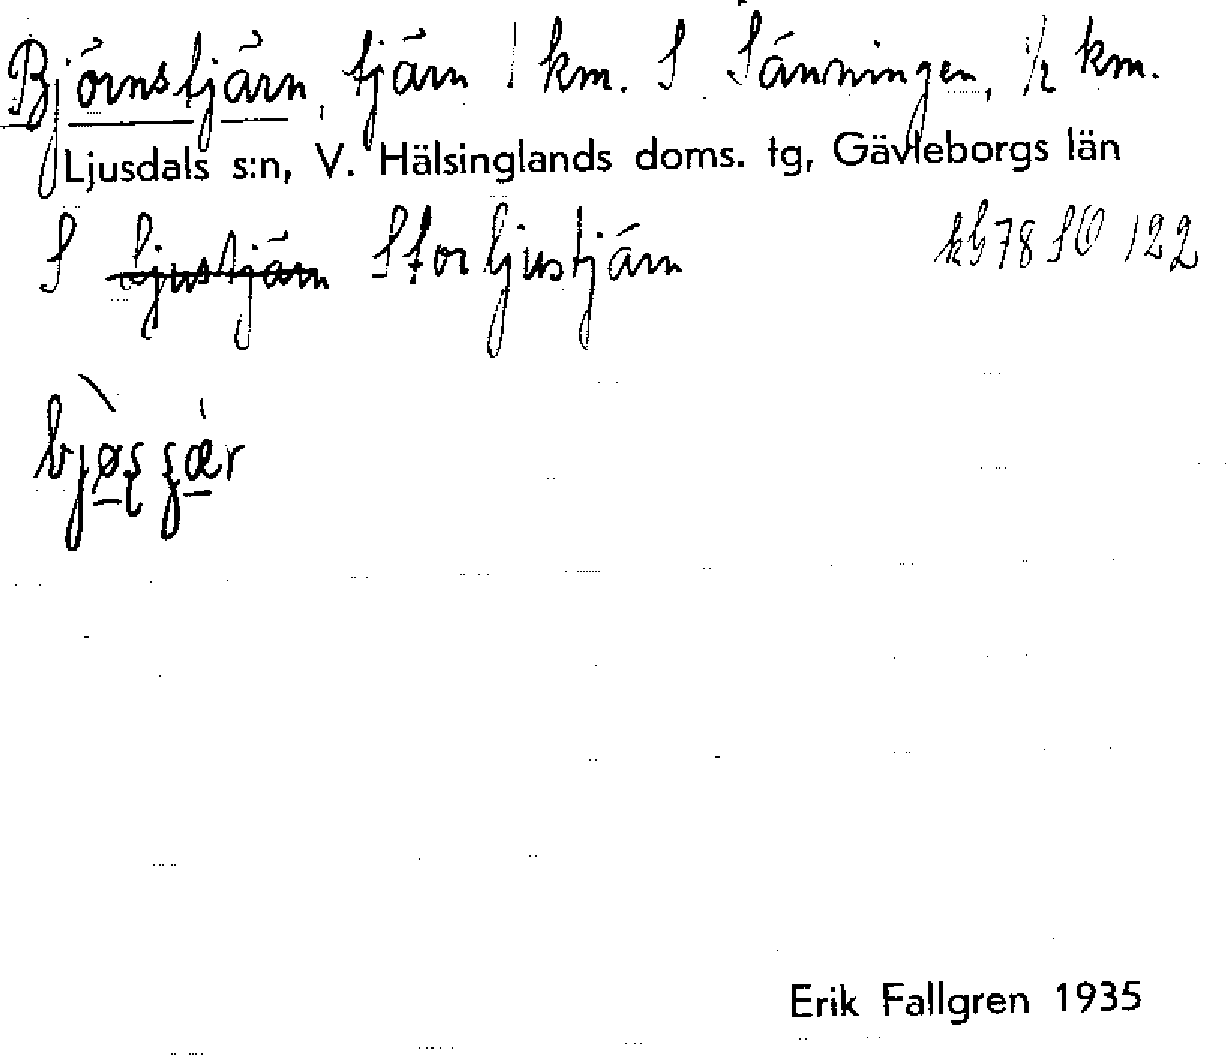 Björnstjärn, tjärn 1 km. S Sänningen, ½ km.
Ljusdals s:n, V. Hälsinglands doms. tg, Gävleborgs län
S Ljustjärn Stor Ljustjärn kG78 SO 122
Erik Fallgren 1935